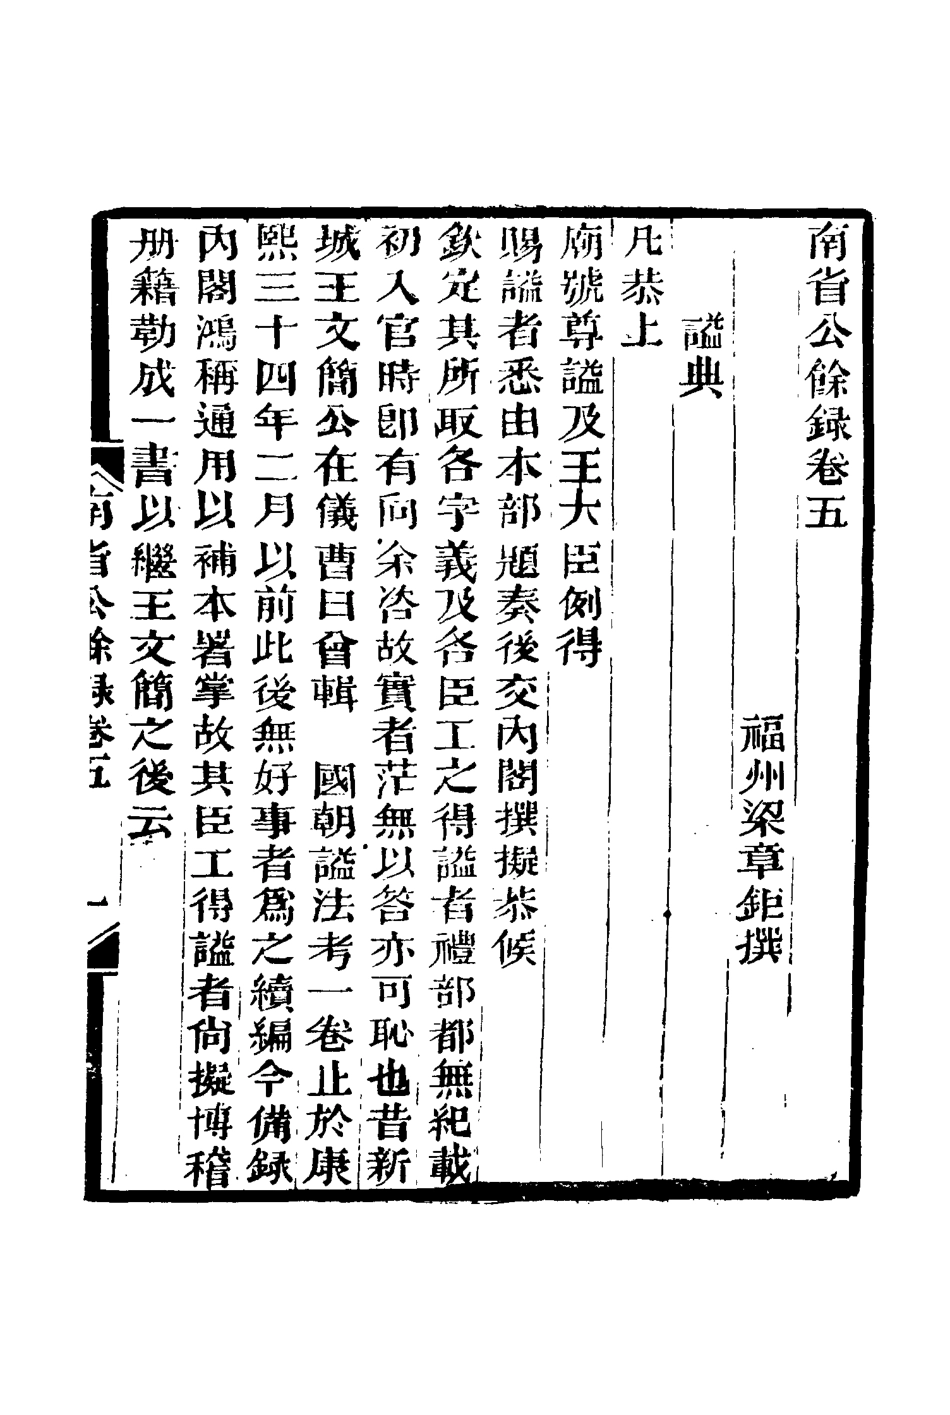 南省公餘録卷五
福州梁章鉅撰
諡典
凡恭上
廟號尊諡及王大臣例得
賜諡者悉由本部題奏後交內閣撰擬恭候
欽定其所取各字義及各臣工之得諡者禮部都無紀載
初入官時卽有向余咨故實者茫無以答亦可恥也昔新
城王文簡公在儀曹曰曾輯　國朝諡法考一卷止於康
熙三十四年二月以前此後無好事者爲之續編今備録
內閣鴻稱通用以補本署掌故其臣工得諡者尙擬博稽
册籍勒成一書以繼王文簡之後云
南省公餘録卷五
一